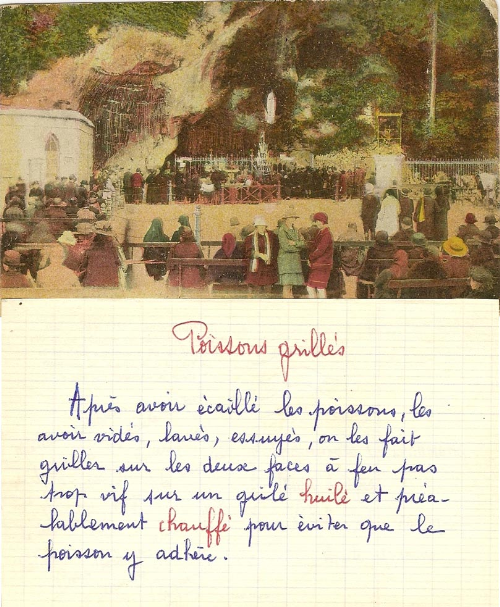 Poissons grillés
Après avoir écaillé les poissons, les
avoir vidés, lavés, essuyés, on les fait
griller sur les deux faces à feu pas
trop vif sur un grilé huilé et préa-
lablement chauffé pour éviter que le
poisson y adhère.